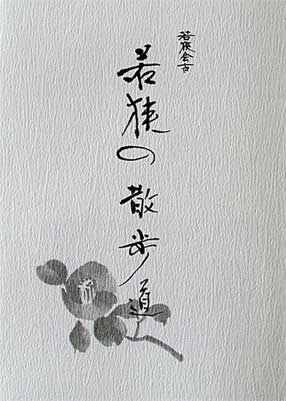 若狭の散歩道
若狭会古